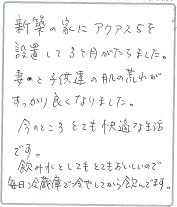 新築の家にアクアス5を
設置して3ヶ月がたちました。
妻と子供達の肌の荒れが
すっかり良くなりました。
今のところとても快適な生活
です。
飲み水としてもとてもおいしいので
毎日冷蔵庫で冷やしてから飲んでます。